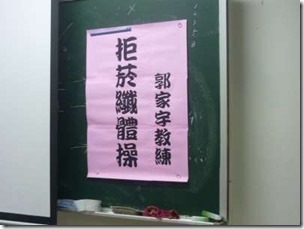 拒菸纖體操
郭家宇教練